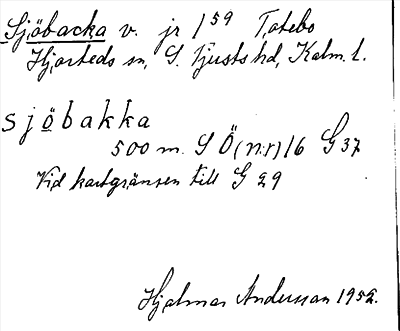 Sjöbacka v. jr 1⁵⁹ Totebo
Hjorteds sn, S. Tjusts hd, Kalm. l.
sjöbakka
500 m. S Ö (nr) 16 G 37
Vid kartgränsen till G 29
Hjalmar Andersson 1952.